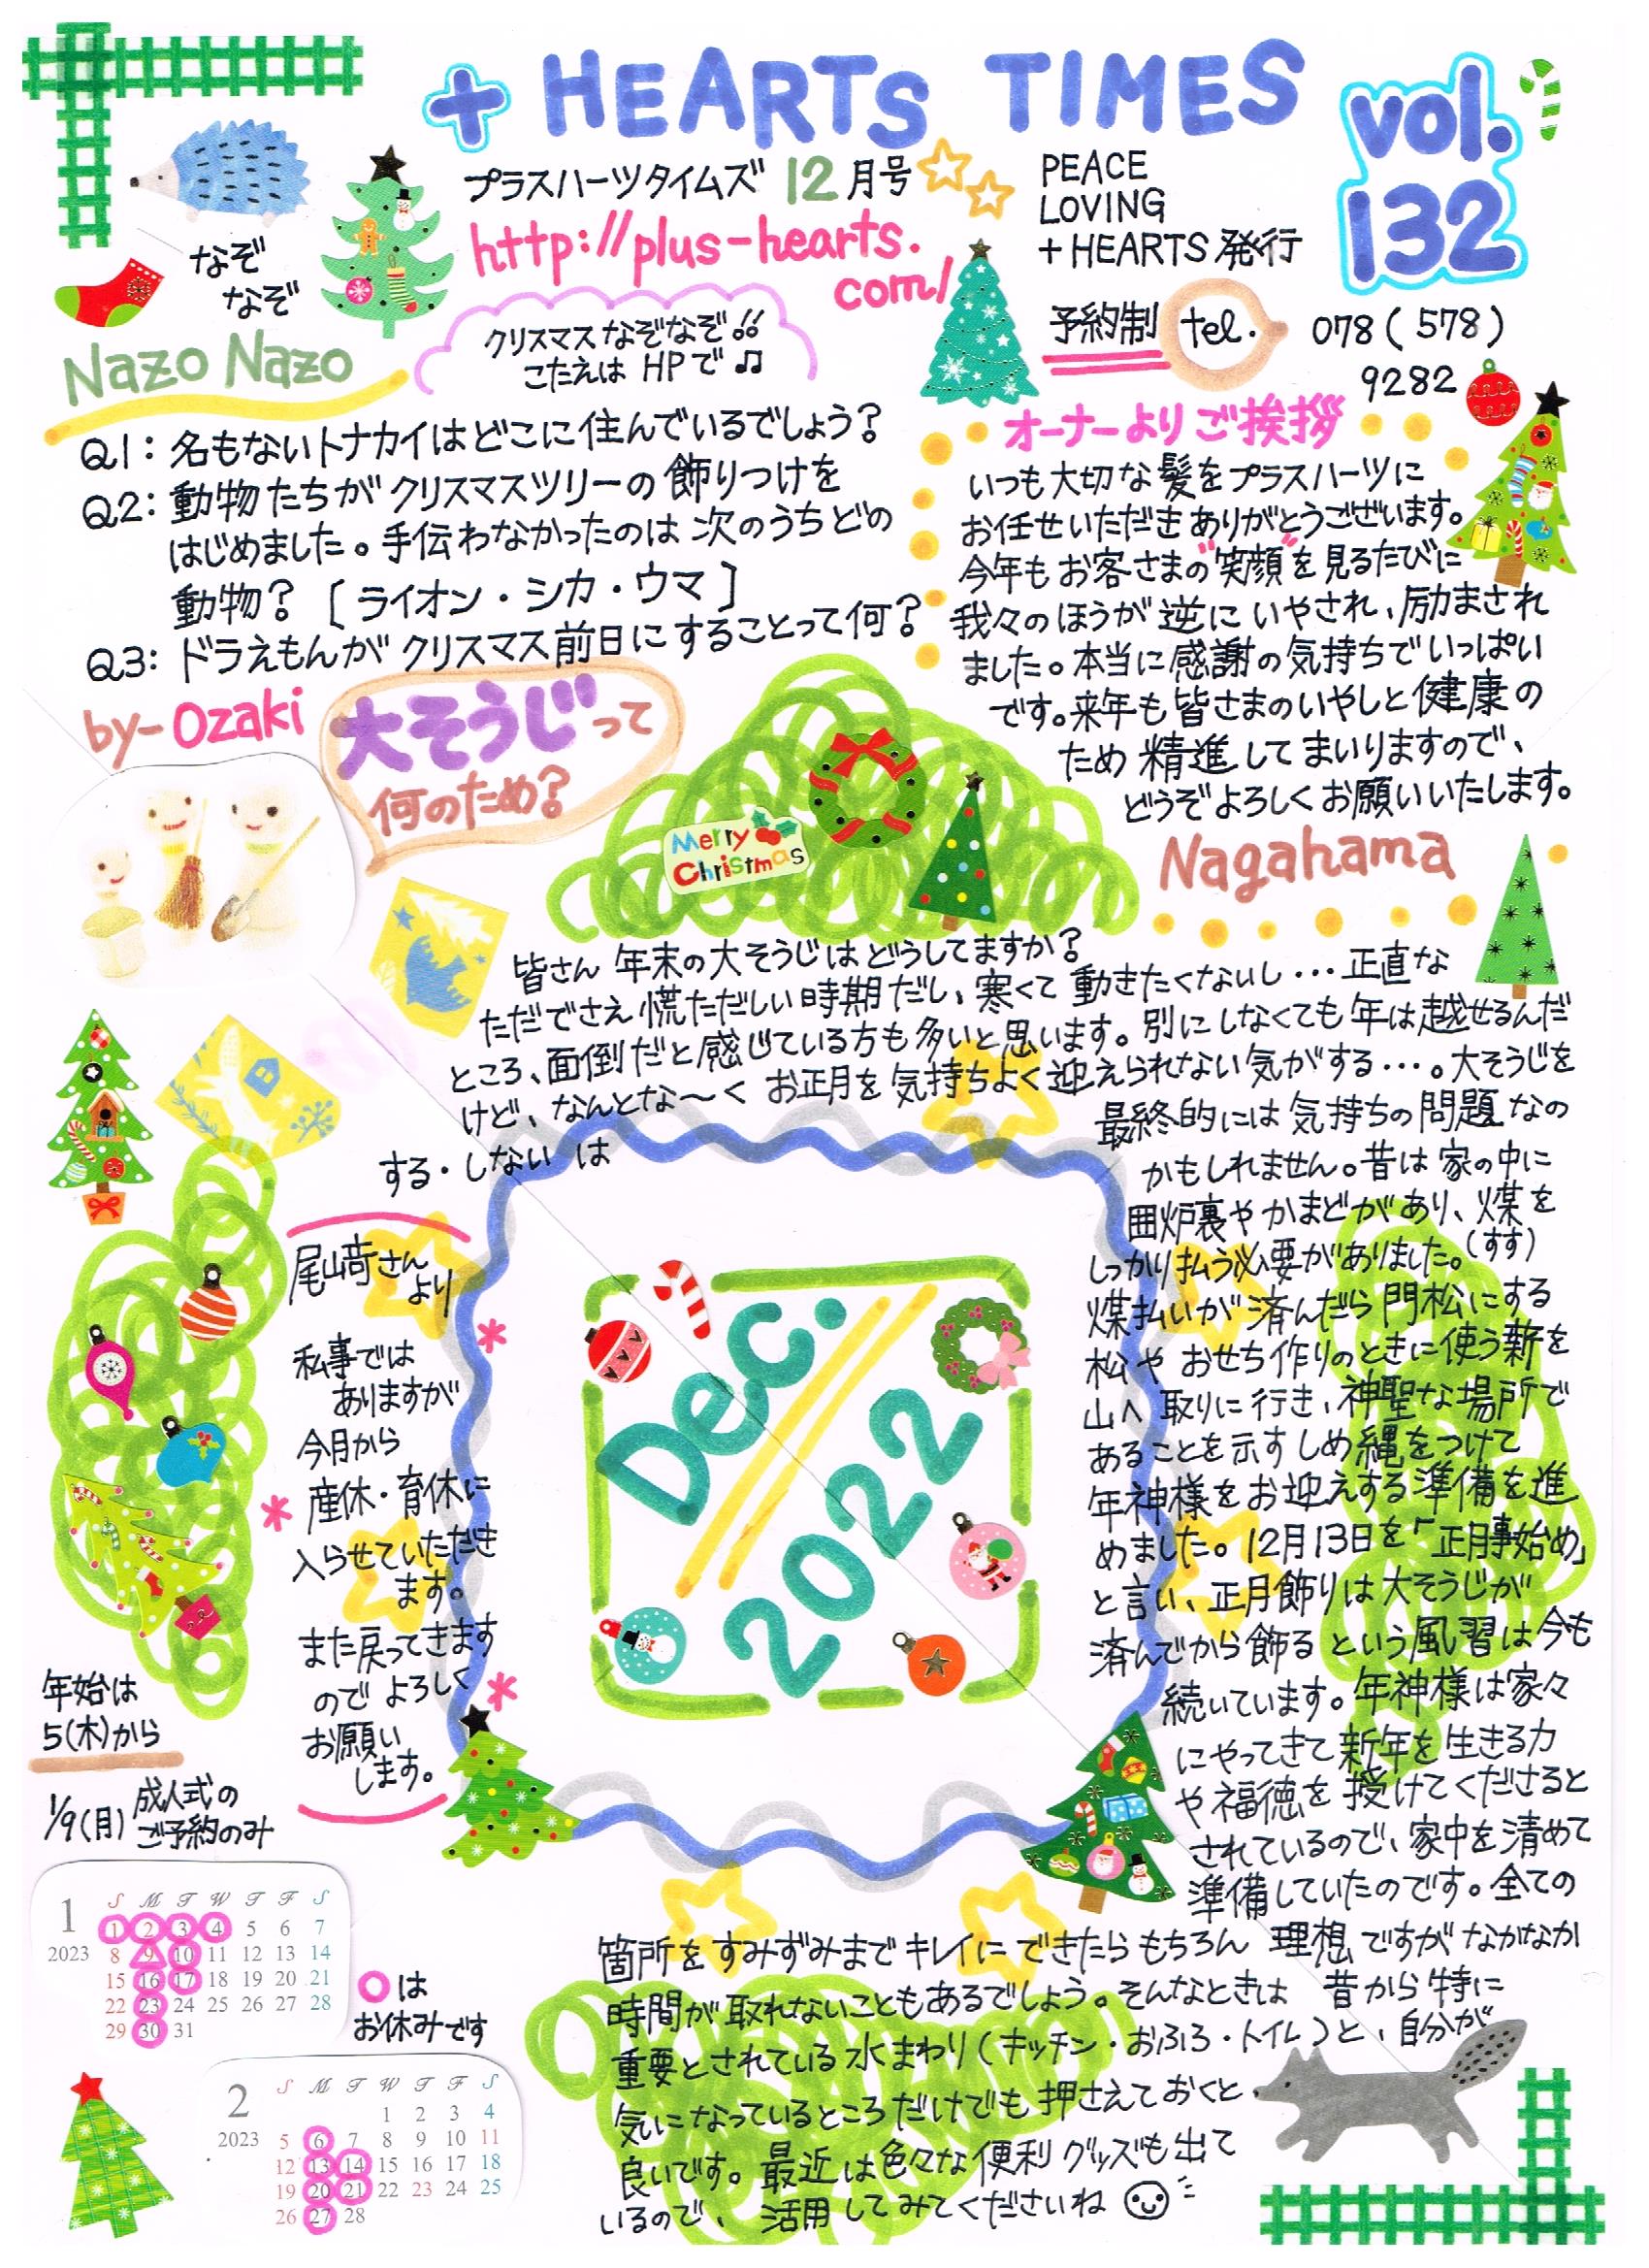 + HEARTS TIMES
vol.
132
プラスハーツタイムズ 12月号
http://plus-hearts.
com/
PEACE
LOVING
+HEARTS発行
予約制 tel. 078(578)
9282
なぞ
なぞ
Nazo Nazo
クリスマスなぞなぞ!!
こたえは HPで♫
Q1: 名もないトナカイはどこに住んでいるでしょう?
Q2: 動物たちがクリスマスツリーの飾りつけを
はじめました。手伝わなかったのは次のうちどの
動物? [ライオン・シカ・ウマ]
Q3: ドラえもんがクリスマス前日にすることって何?
by-Ozaki
オーナーよりご挨拶
いつも大切な髪をプラスハーツに
お任せいただきありがとうございます。
今年もお客さまの"笑顔"を見るたびに
我々のほうが逆にいやされ、励まされ
ました。本当に感謝の気持ちでいっぱい
です。来年も皆さまのいやしと健康の
ため精進してまいりますので、
どうぞよろしくお願いいたします。
Nagahama
大そうじって
何のため?
Merry
Christmas
皆さん 年末の大そうじはどうしてますか?
ただでさえ慌ただしい時期だし、寒くて動きたくないし…正直な
ところ、面倒だと感じている方も多いと思います。別にしなくても年は越せるんだ
けど、なんとな〜く お正月を気持ちよく迎えられない気がする…。大そうじを
する・しないは
最終的には気持ちの問題なの
かもしれません。昔は家の中に
囲炉裏やかまどがあり、煤を
(すす)
しっかり払う必要がありました。
煤払いが済んだら門松にする
松やおせち作りのときに使う薪を
山へ取りに行き、神聖な場所で
あることを示すしめ縄をつけて
年神様をお迎えする準備を進
めました。12月13日を「正月事始め」
と言い、正月飾りは大そうじが
済んでから飾るという風習は今も
続いています。年神様は家々
にやってきて新年を生きる力
や福徳を授けてくださると
されているので、家中を清めて
準備していたのです。全ての
箇所をすみずみまでキレイにできたらもちろん理想ですがなかなか
時間が取れないこともあるでしょう。そんなときは 昔から特に
重要とされている水まわり(キッチン・おふろ・トイレ)と、自分が
気になっているところだけでも押さえておくと
良いです。最近は色々な便利グッズも出て
いるので、活用してみてくださいね
尾崎さん
より
私事では
ありますが
今月から
産休・育休に
入らせていただき
ます。
また戻ってきます
のでよろしく
お願い
します。
Dec.
2022
年始は
5(木)から
1/9(月) 成人式の
ご予約のみ
1
2023
S M T W T F S
1 2 3 4 5 6 7
8 9 10 11 12 13 14
15 16 17 18 19 20 21
22 23 24 25 26 27 28
29 30 31
○は
お休みです
2
2023
S M T W T F S
1 2 3 4
5 6 7 8 9 10 11
12 13 14 15 16 17 18
19 20 21 22 23 24 25
26 27 28